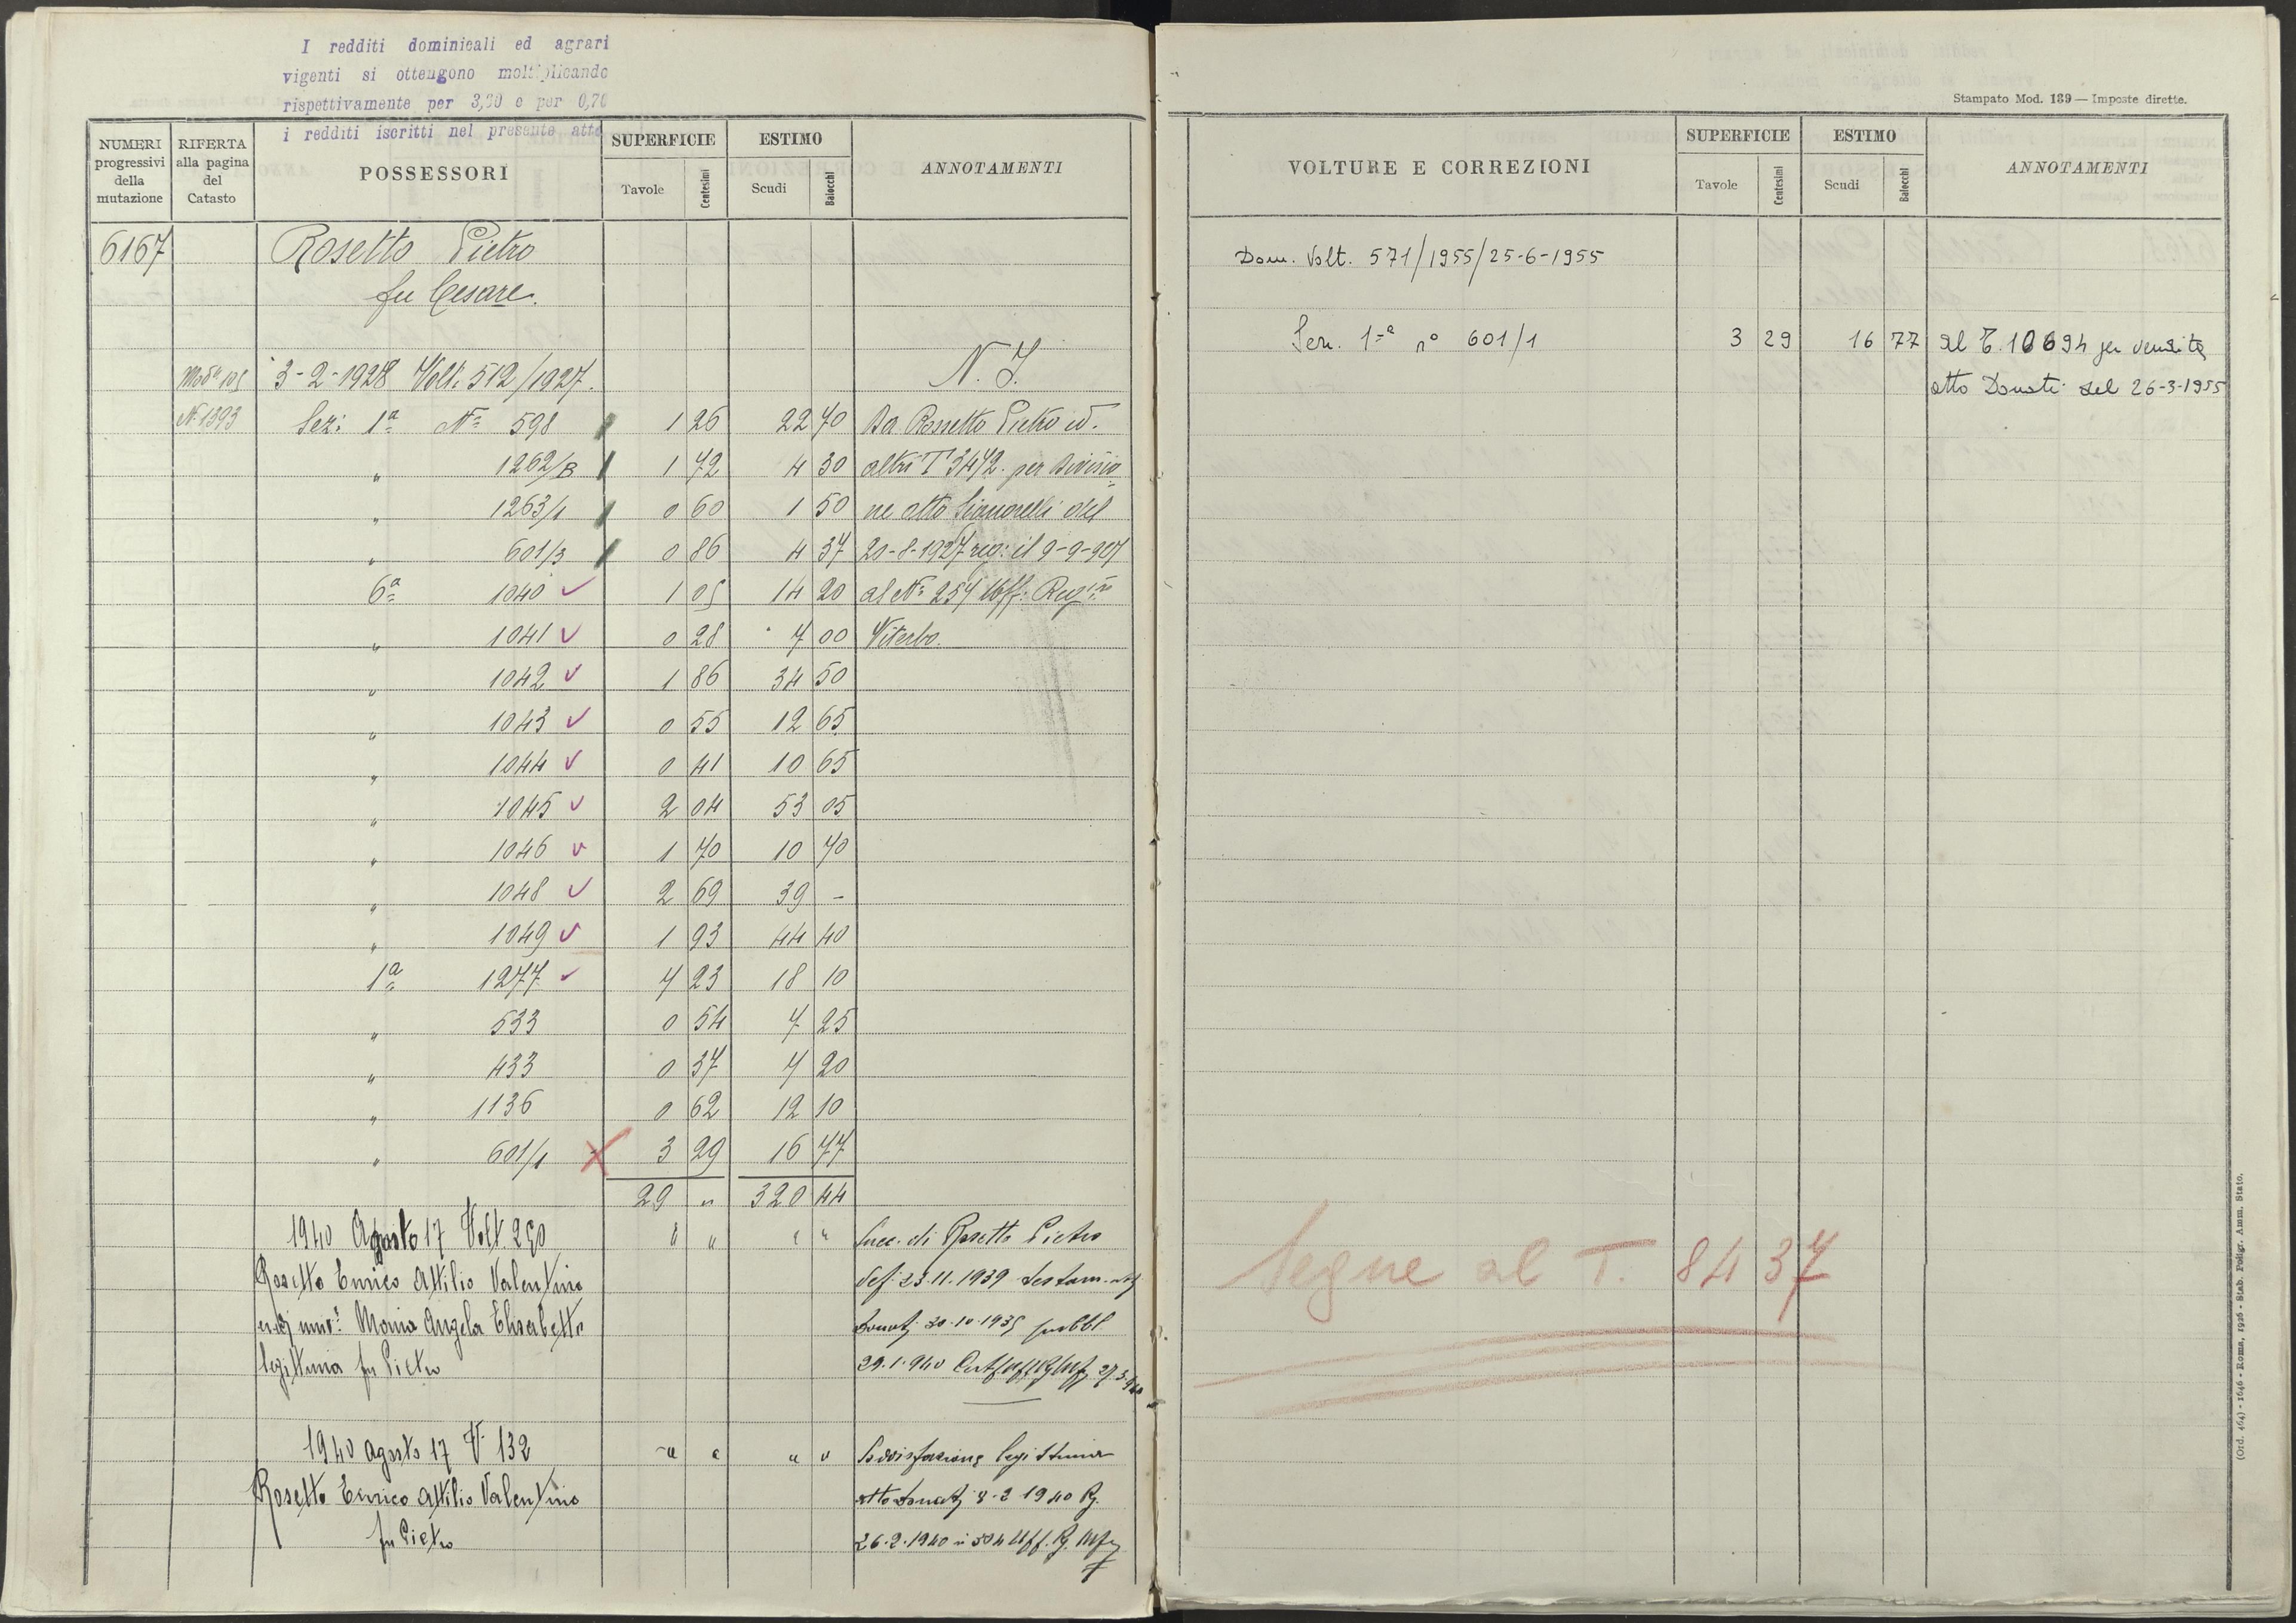 I redditi dominicali ed agrari
vigenti si ottengono moltiplicando
rispettivamente per 3,30 e per 0,70
i redditi iscritti nel presente atto
NUMERI progressivi della mutazione
RIFERTA alla pagina del Catasto
POSSESSORI
SUPERFICIE
Tavole Centesimi
ESTIMO
Scudi Baiocchi
ANNOTAMENTI
6167 Rosetto Pietro
fu Cesare.
N. I.
3-2-1928 Volt. 512/1927.
N. 1393 Sez: 1ª Nº 598 1 26 22 70 Da Rossetto Pietro ed
" 1262/B 1 72 4 30 altri T 3472. per divisio
" 1263/1 0 60 1 50 ne atto Signorelli del
" 601/3 0 86 4 37 20-8-1927 reg: il 9-9-927
6ª 1040 1 05 14 20 al Nº 254 Uff: Reg.
" 1041 0 28 7 00 Viterbo.
" 1042 1 86 34 50
" 1043 0 55 12 65
" 1044 0 41 10 65
" 1045 2 04 53 05
" 1046 1 70 10 70
" 1048 2 69 39 -
" 1049 1 93 44 40
1ª 1277 7 23 18 10
" 533 0 54 7 25
" 433 0 37 7 20
" 1136 0 62 12 10
" 601/1 3 29 16 77
29 " 320 44
1940 Agosto 17 Volt. 290 " " " " Succ. di Rosetto Pietro
Rosetto Enrico Attilio Valentino 23.11.1939
Maria Angela Elisabetta 30-10-1935 pubbl
legittima fu Pietro 29.1.940
1940 agosto 17 V. 132 " " " " Soddisfazione legittima
Rosetto Enrico Attilio Valentino atto Donati 8-2 1940
fu Pietro 26.2.1940 Uff. Rg.
Stampato Mod. 139 — Imposte dirette.
VOLTURE E CORREZIONI
SUPERFICIE
Tavole Centesimi
ESTIMO
Scudi Baiocchi
ANNOTAMENTI
Dom. Volt. 571/1955/25-6-1955
Sez. 1ª nº 601/1 3 29 16 77 al T. 10694 per vendita
atto Donati del 26-3-1955
Segue al T. 8437
(Ord. 464) - 1646 - Roma, 1926 - Stab. Poligr. Amm. Stato.